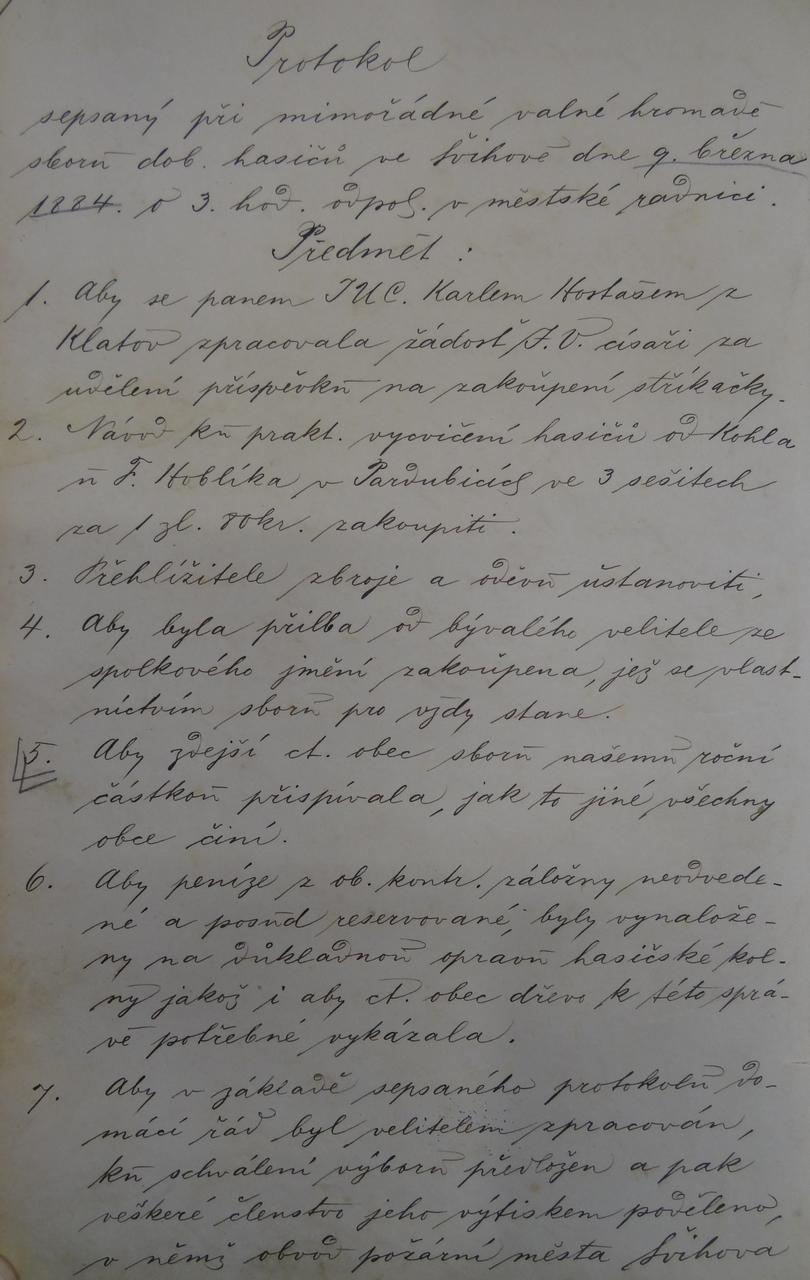 Protokol
sepsaný při mimořádné valné hromadě
sboru dob. hasičů ve Švihově dne 9. března
1884. o 3. hod. odpol. v městské radnici.
Předmět :
1. Aby se panem JUC. Karlem Hostašem z
Klatov zpracovala žádost J. V. císaři za
udělení příspěvku na zakoupení stříkačky.
2. Návod ku prakt. vycvičení hasičů od Kohla
u F. Hoblíka v Pardubicích ve 3 sešitech
za 1 zl. 80 kr. zakoupiti.
3. Přehlížitele zbroje a oděvu ustanoviti,
4. Aby byla přilba od bývalého velitele ze
spolkového jmění zakoupena, jež se vlast-
nictvím sboru pro vždy stane.
5. Aby zdejší ct. obec sboru našemu roční
částkou přispívala, jak to jiné všechny
obce činí.
6. Aby peníze z ob. kontr. záložny neodvede-
né a posud reservované, byly vynalože-
ny na důkladnou opravu hasičské kol-
ny jakož i aby ct. obec dřevo k této sprá-
vě potřebné vykázala.
7. Aby v základě sepsaného protokolu do-
mácí řád byl velitelem zpracován,
ku schválení výboru předložen a pak
veškeré členstvo jeho výtiskem poděleno,
v němž obvod požární města Švihova